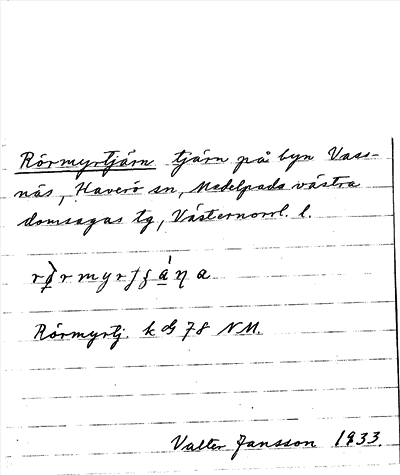 Rörmyrtjärn tjärn på byn Vass-
näs, Haverö sn, Medelpads västra
domsagas tg, Västernorrl. l.
Rörmyrtj. k bl 78 NM.
Valter Jansson 1933.